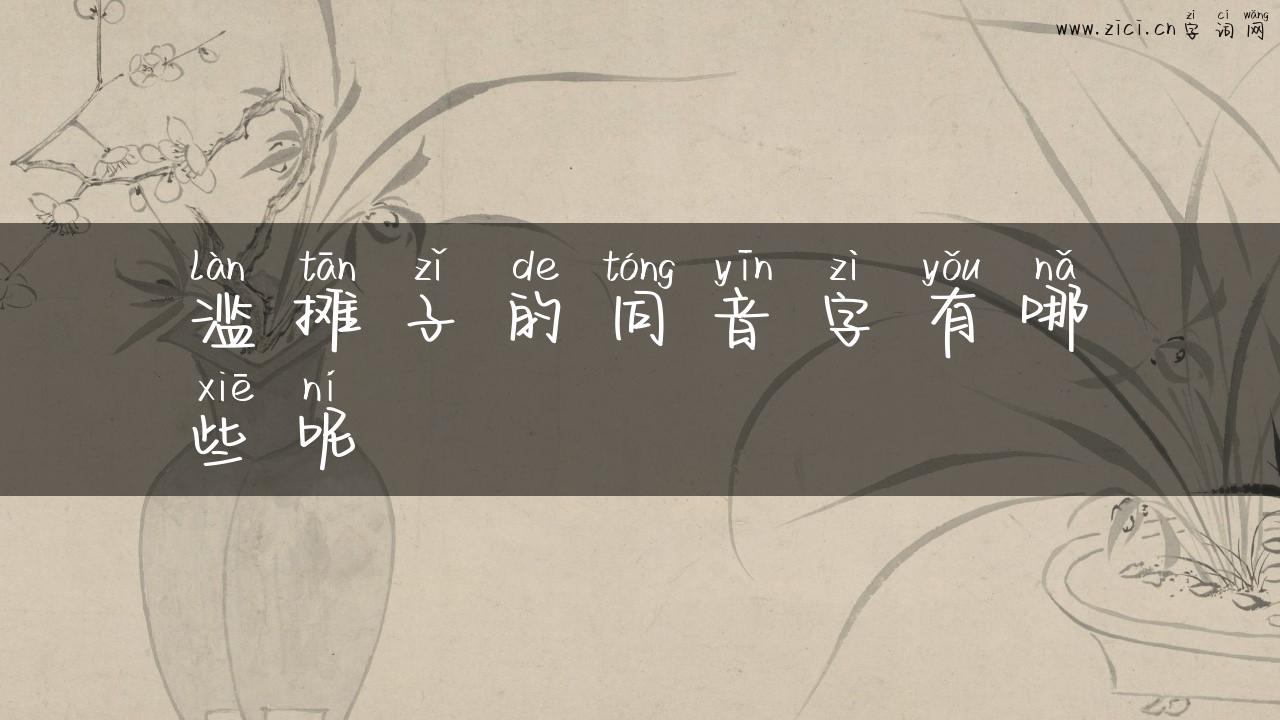 zì cí wǎng
www.zici.cn 字词网
làn tān zǐ de tóng yīn zì yǒu nǎ
滥摊子的同音字有哪
xiē ní
些呢